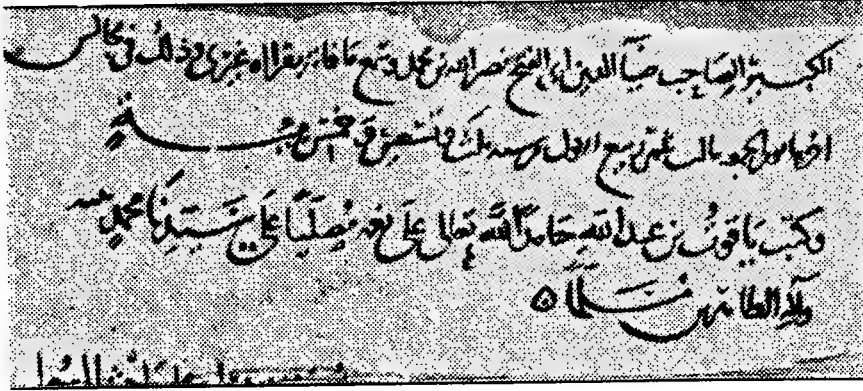 الكبير الصاحب ضيآ الدين ابى الفتح نصر الله بن محمد وسمع ما قابه بقراه غيرى وذلك فى مجالس
اخرها يوم الجمعه ثالث عشر ربيع الاول من سنه ثلث وتسعين و خمس مئة
وكتب ياقوت بن عبد الله حامدا لله تعالى على نعمه مصليا على سيدنا محمد
وآله الطاهرين مسلما